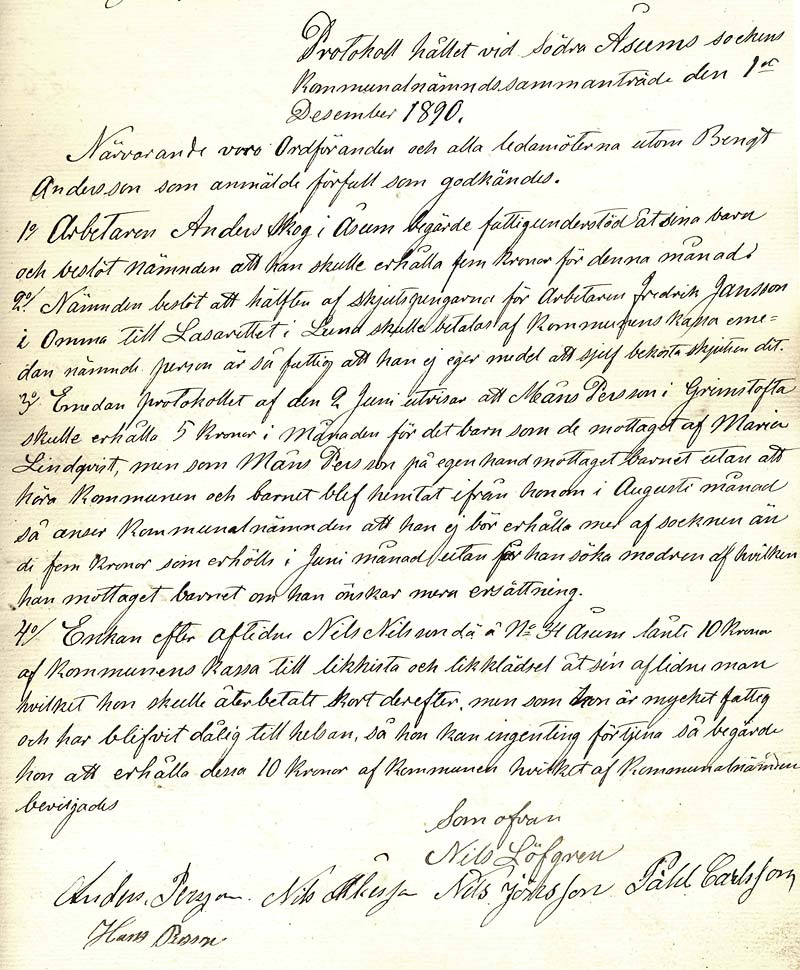 Protokoll hållet vid Södra Åsums sockens
Kommunalnämndssammanträde den 1sta
Desember 1890.
Närvarande voro Ordföranden och alla ledamöterna utom Bengt
Andersson som anmälde förfall som godkändes.
1o Arbetaren Anders Skog i Åsum begärde fattigunderstöd åt sina barn
och beslöt nämnden att han skulle erhålla fem kronor för denna månad.
2o/ Nämnden beslöt att hälften af skjutspengarna för Arbetaren Fredrik Jansson
i Omma till Lasarettet i Lund skulle betalas af Kommunens kassa eme=
dan nämnde person är så fattig att han ej eger medel att sjelf bekosta skjutsen dit.
3o/ Emedan protokollet af den 2 Juni utvisar att Måns Persson i Grimstofta
skulle erhålla 5 Kronor i Månaden för det barn som de mottaget af Maria
Lindqvist, men som Måns Persson på egen hand mottaget barnet utan att
höra Kommunen och barnet blef hemtat ifrån honom i Augusti månad
så anser Kommunalnämnden att han ej bör erhålla mer af socknen än
de fem Kronor som erhölls i Juni månad utan får han söka modren af hvilken
han mottaget barnet om han önskar mera ersättning.
4o/ Enkan efter aflidne Nils Nilsson då å No 34 Åsum lånte 10 Kronor
af Kommunens Kassa till likkista och likklädsel åt sin aflidne man
hvilket hon skulle återbetalt kort derefter, men som hon är mycket fattig
och har blifvit dålig till helsan, så hon kan ingenting förtjena så begärde
hon att erhålla dessa 10 Kronor af Kommunen hvilket af Kommunalnämnden
beviljades
Som ofvan
Nils Löfgren
Anders Persson Nils Åkesson Nils Jönsson Påhl Carlsson
Hans